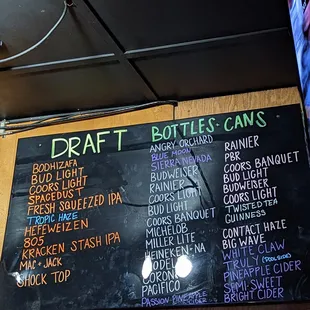 DRAFT
BODHIZAFA
BUD LIGHT
COORS LIGHT
SPACEDUST
FRESH SQUEEZED IPA
TROPIC HAZE
HEFEWEIZEN
805
KRACKEN STASH IPA
MAC + JACK
SHOCK TOP
BOTTLES - CANS
ANGRY ORCHARD
BLUE MOON
SIERRA NEVADA
BUDWEISER
RAINIER
COORS LIGHT
BUD LIGHT
COORS BANQUET
MICHELOB
MILLER LITE
HEINEKEN-NA
MODELO
CORONA
PACIFICO
PASSION PINEAPPLE
RAINIER
PBR
COORS BANQUET
BUD LIGHT
BUDWEISER
COORS LIGHT
TWISTED TEA
GUINNESS
CONTACT HAZE
BIG WAVE
WHITE CLAW
TRULY
PINEAPPLE CIDER
SEMI SWEET
BRIGHT CIDER